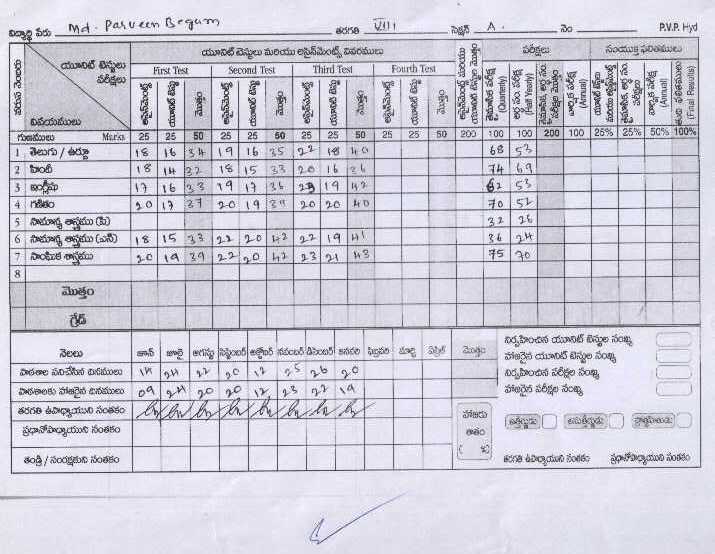 విద్యార్థి పేరు Md. Parveen Begum తరగతి VIII సెక్షన్ A. నెం P.V.P. Hyd
వరుస నెంబరు యూనిట్ టెస్టులు పరీక్షలు విషయములు
యూనిట్ టెస్టులు మరియు అసైన్‌మెంట్స్ వివరములు పరీక్షలు సంయుక్త ఫలితములు
First Test Second Test Third Test Fourth Test
అసైన్‌మెంట్స్ యూనిట్ టెస్టు మొత్తం అసైన్‌మెంట్స్ యూనిట్ టెస్టు మొత్తం అసైన్‌మెంట్స్ యూనిట్ టెస్టు మొత్తం అసైన్‌మెంట్స్ యూనిట్ టెస్టు మొత్తం (Quarterly) (Half Yearly) (Annual) (Annual) (Final Results)
గుణములు Marks 25 25 50 25 25 50 25 25 50 25 25 50 200 100 100 200 100 25% 25% 50% 100%
1 తెలుగు / ఉర్దూ 18 16 34 19 16 35 22 18 40 68 53
2 హిందీ 18 14 32 18 15 33 20 16 36 74 69
3 ఇంగ్లీషు 17 16 33 19 17 36 19 42 62 53
4 గణితం 20 17 37 20 19 39 20 20 40 70 52
5 సామాన్య శాస్త్రము (పి) 32 26
6 సామాన్య శాస్త్రము (ఎన్) 18 15 33 22 20 42 22 19 41 36 24
7 సాంఘిక శాస్త్రము 20 19 39 22 20 42 23 21 43 75 70
8
మొత్తం
గ్రేడ్
నెలలు జూన్ జూలై ఆగస్టు సెప్టెంబర్ అక్టోబర్ నవంబర్ డిసెంబర్ జనవరి ఫిబ్రవరి మార్చి ఏప్రిల్ మొత్తం
పాఠశాల పనిచేసిన దినములు 14 24 22 20 12 25 26 20
పాఠశాలకు హాజరైన దినములు 09 24 20 20 12 23 22 19
తరగతి ఉపాధ్యాయుని సంతకం
ప్రధానోపాధ్యాయుని సంతకం
తండ్రి / సంరక్షకుని సంతకం
హాజరు శాతం ( %)
నిర్వహించిన యూనిట్ టెస్టుల సంఖ్య
హాజరైన యూనిట్ టెస్టుల సంఖ్య
నిర్వహించిన పరీక్షల సంఖ్య
హాజరైన పరీక్షల సంఖ్య
ఉత్తీర్ణుడు అనుత్తీర్ణుడు ప్రోత్సహితుడు
తరగతి ఉపాధ్యాయుని సంతకం ప్రధానోపాధ్యాయుని సంతకం